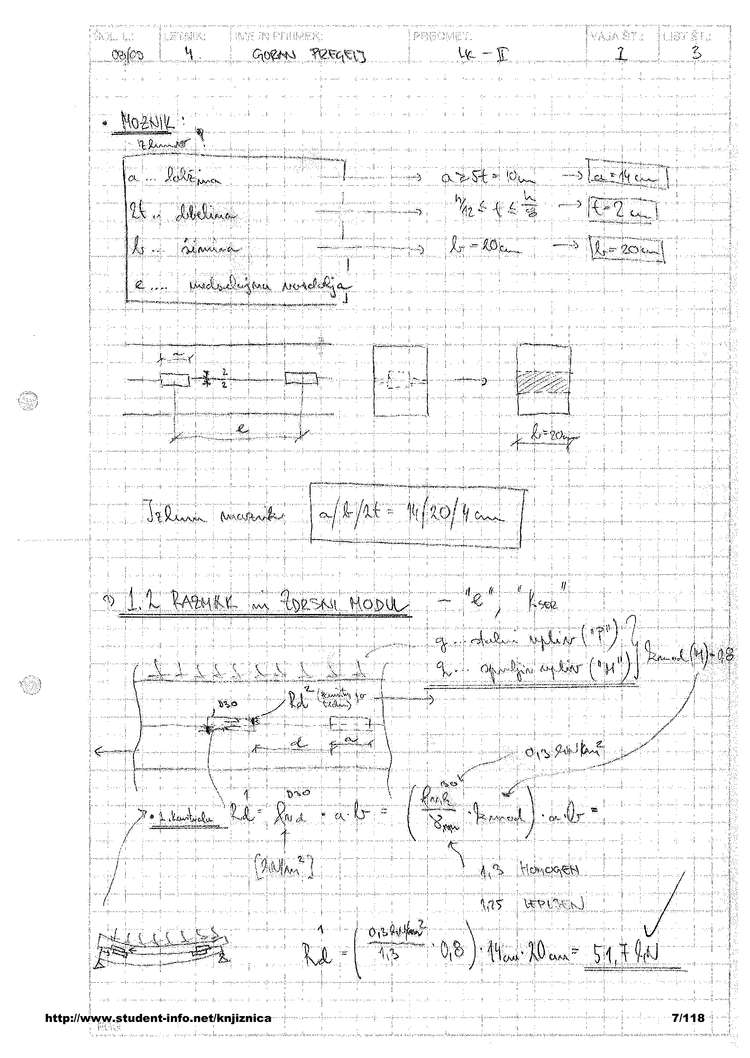 ŠOL. L.: LETNIK: IME IN PRIIMEK: PREDMET: VAJA ŠT.: LIST ŠT.:
4 GORAN PREGELJ LK - II 1 3
• MOZNIK:
a ... dolžina → a ≥ 5t = 10 cm → a = 14 cm
2t .. debelina → h/12 ≤ t ≤ h/8 → t = 2 cm
b ... širina → b = 20 cm → b = 20 cm
e .... medsebojna razdalja
2
2
e
b = 20 cm
Izberem moznik a/b/2t = 14/20/4 cm
1.2 RAZMIK in ZDRSNI MODUL - "e", "KSER"
g ... stalni vpliv ("P")
q ... vpliv ("M") kmod (M) = 0,8
D30 Rd²
d a
0,3 kN/cm²
D30 D30
• 1. kontrola Rd¹ = fv,d · a · b = (fv,k/γm · kmod) · a · b =
[kN/cm²]
1,3 HOMOGEN
1,25 LEPLJEN
Rd¹ = (0,3 kN/cm² / 1,3 · 0,8) · 14 cm · 20 cm = 51,7 kN
http://www.student-info.net/knjiznica 7/118